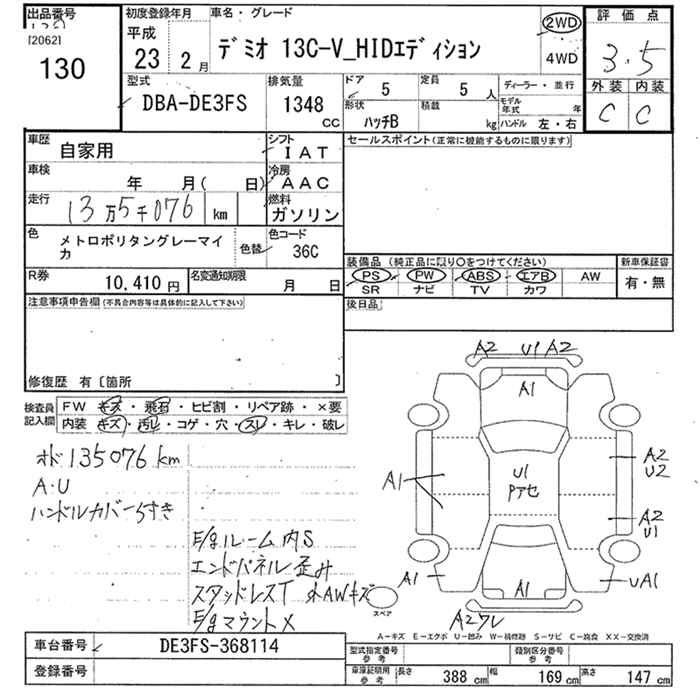 出品番号
[2062]
130
初度登録年月
平成
23年 2月
車名・グレード
デミオ 13C-V_HIDエディション
2WD
4WD
評価点
3.5
外装 内装
C C
型式
DBA-DE3FS
排気量
1348
CC
ドア 5
定員 5 人
形状 ハッチB
積載 kg
ディーラー・並行
モデル年式 年
ハンドル 左・右
車歴
自家用
シフト
IAT
車検
年 月( 日)
冷房
AAC
走行
13万5千076 km
燃料
ガソリン
色
メトロポリタングレーマイカ
色替
色コード
36C
R券
10,410 円
名変通知期限
月 日
セールスポイント(正常に機能するものに限ります)
装備品 (純正品に限り○をつけてください)
新車保証書
PS PW ABS エアB AW
SR ナビ TV カワ
有・無
注意事項申告欄(不具合内容等は具体的に記入して下さい)
後日品
修復歴 有〔箇所 〕
検査員記入欄
FW キズ・飛石・ヒビ割・リペア跡・×要
内装 キズ・汚レ・コゲ・穴・スレ・キレ・破レ
オド 135076 km
A・U
ハンドルカバーうすき
E/gルーム内S
エンドパネル歪み
スタッドレスT 外AWキズ
E/gマウント×
A2 U1 A2
A1
A1
U1
Pアセ
A2
U2
A2
U1
A1
A1
UA1
A2ワレ
スペア
A-キズ E-エクボ U-凹み W-補修跡 S-サビ C-腐食 XX-交換済
車台番号
DE3FS-368114
登録番号
型式指定番号
参考
類別区分番号
参考
車庫証明用
参考
長さ 388 cm
幅 169 cm
高さ 147 cm